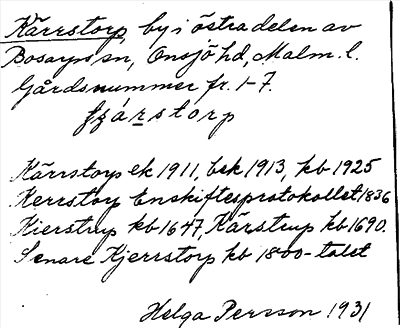 Kärrstorp, by i östra delen av
Bosarps sn, Onsjö hd, Malm. l.
Gårdsnummer fr. 1-7.
Kärrstorp ek 1911, bsk 1913, kb 1925
Kerrstorp Enskiftesprotokollet 1836
Kierstrup kb 1647, Kärstrup kb 1690.
Senare Kjerrstorp kb 1800-talet
Helga Persson 1931